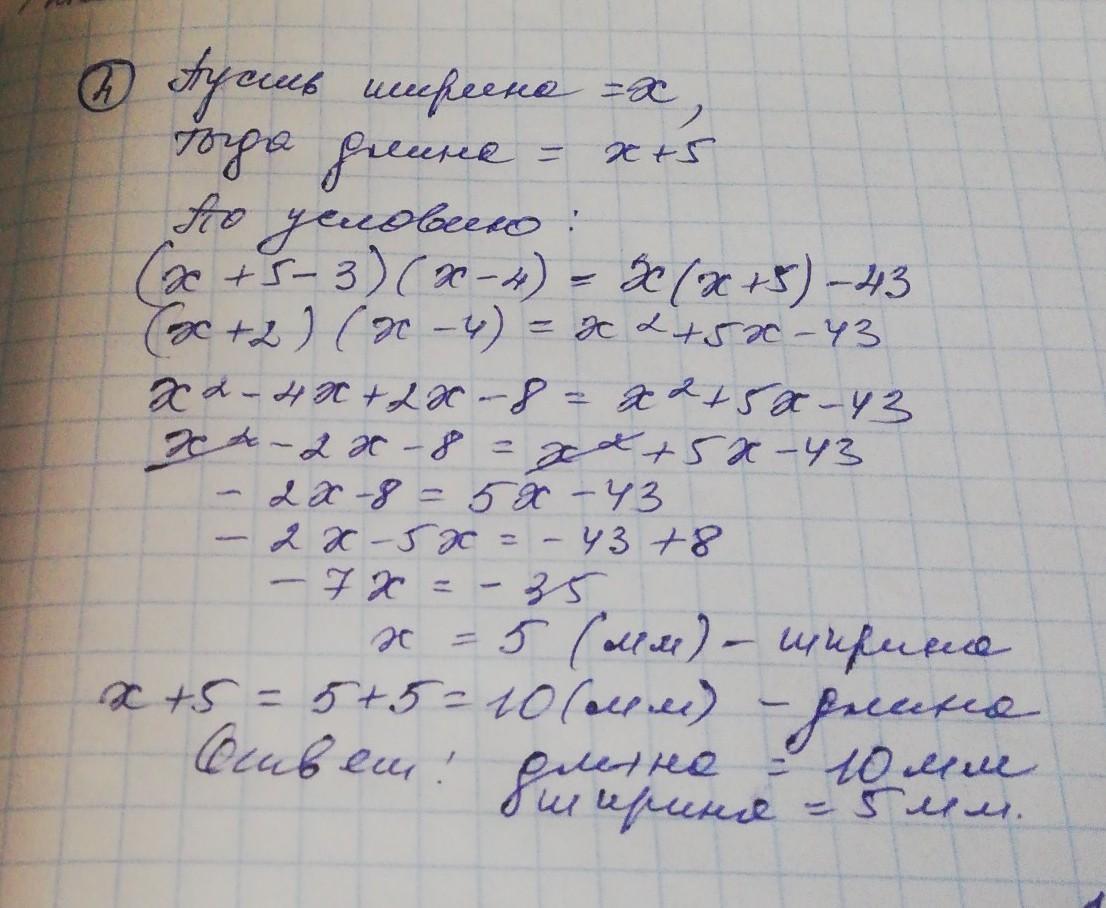 4 Пусть ширина = x,
тогда длина = x+5
По условию:
(x + 5 - 3)(x - 4) = x(x+5) - 43
(x+2)(x-4) = x²+5x-43
x² - 4x + 2x - 8 = x² + 5x - 43
x² - 2x - 8 = x² + 5x - 43
- 2x - 8 = 5x - 43
- 2x - 5x = - 43 + 8
- 7x = - 35
x = 5 (мм) - ширина
x + 5 = 5 + 5 = 10 (мм) - длина
Ответ: длина = 10 мм
ширина = 5 мм.